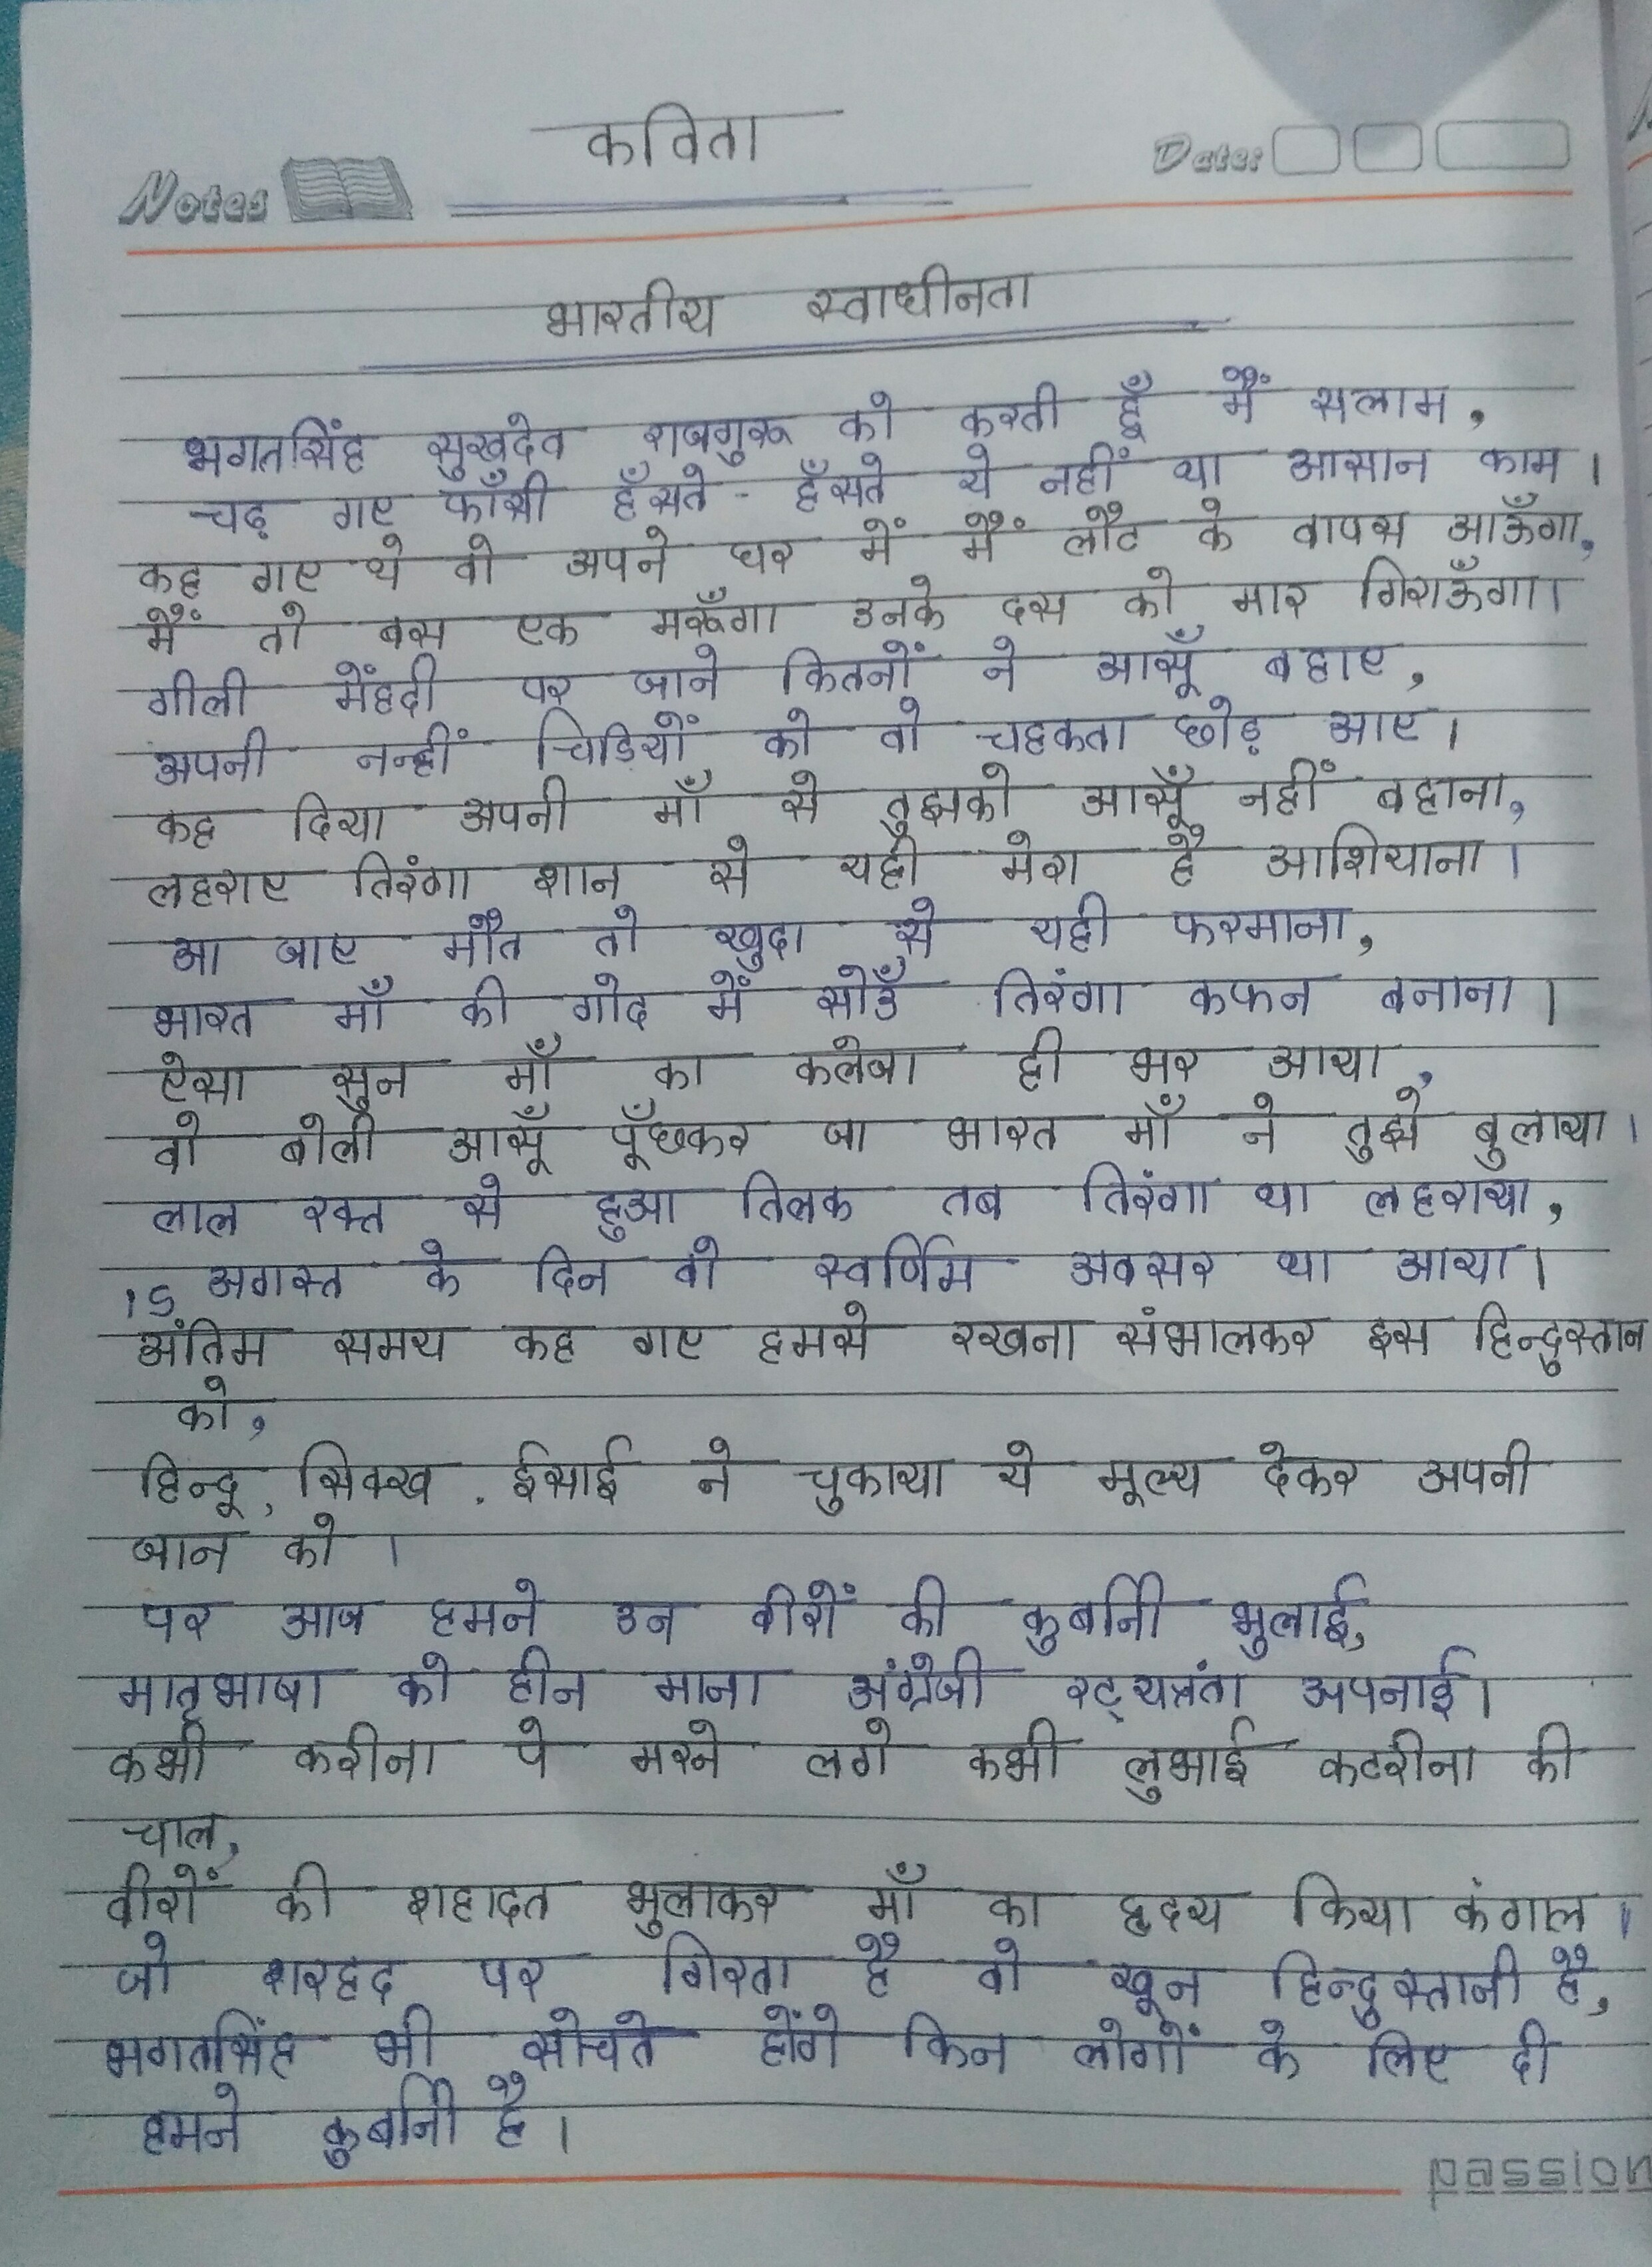 कविता
Notes
Date:
भारतीय स्वाधीनता
भगतसिंह सुखदेव राजगुरू को करती हूँ मैं सलाम,
चढ़ गए फाँसी हँसते - हँसते ये नहीं था आसान काम।
कह गए थे वो अपने घर में मैं लौट के वापस आऊँगा,
मैं तो बस एक मरूँगा उनके दस को मार गिराऊँगा।
गीली मेंहदी पर जाने कितनों ने आसूँ बहाए,
अपनी नन्हीं चिडियों को वो चहकता छोड़ आए।
कह दिया अपनी माँ से तुझको आसूँ नहीं बहाना,
लहराए तिरंगा शान से यही मेरा है आशियाना।
आ जाए मौत तो खुदा से यही फरमाना,
भारत माँ की गोद में सोउँ तिरंगा कफन बनाना।
ऐसा सुन माँ का कलेजा ही भर आया,
वो बोली आसूँ पूँछकर जा भारत माँ ने तुझे बुलाया।
लाल रक्त से हुआ तिलक तब तिरंगा था लहराया,
15 अगस्त के दिन वो स्वर्णिम अवसर था आया।
अंतिम समय कह गए हमसे रखना संभालकर इस हिन्दुस्तान
को,
हिन्दू, सिक्ख, ईसाई ने चुकाया ये मूल्य देकर अपनी
जान को।
पर आज हमने उन वीरों की कुर्बानी भुलाई,
मातृभाषा को हीन माना अंग्रेजी अपनाई।
कभी करीना पे मरने लगे कभी लुभाई कटरीना की
चाल,
वीरों की शहादत भुलाकर माँ का हृदय किया कंगाल।
जो शरहद पर गिरता है वो खून हिन्दुस्तानी है,
भगतसिंह भी सोचते होंगे किन लोगों के लिए दी
हमने कुर्बानी है।
passion